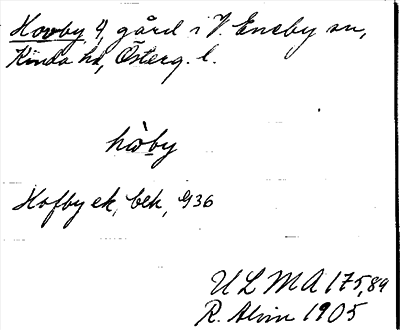 Hovby 4, gård i V. Eneby sn,
Kinda hd, Österg. l.
hòby
Hofby ek, bek, 936
ULMA 175,89
R. Alvin 1905